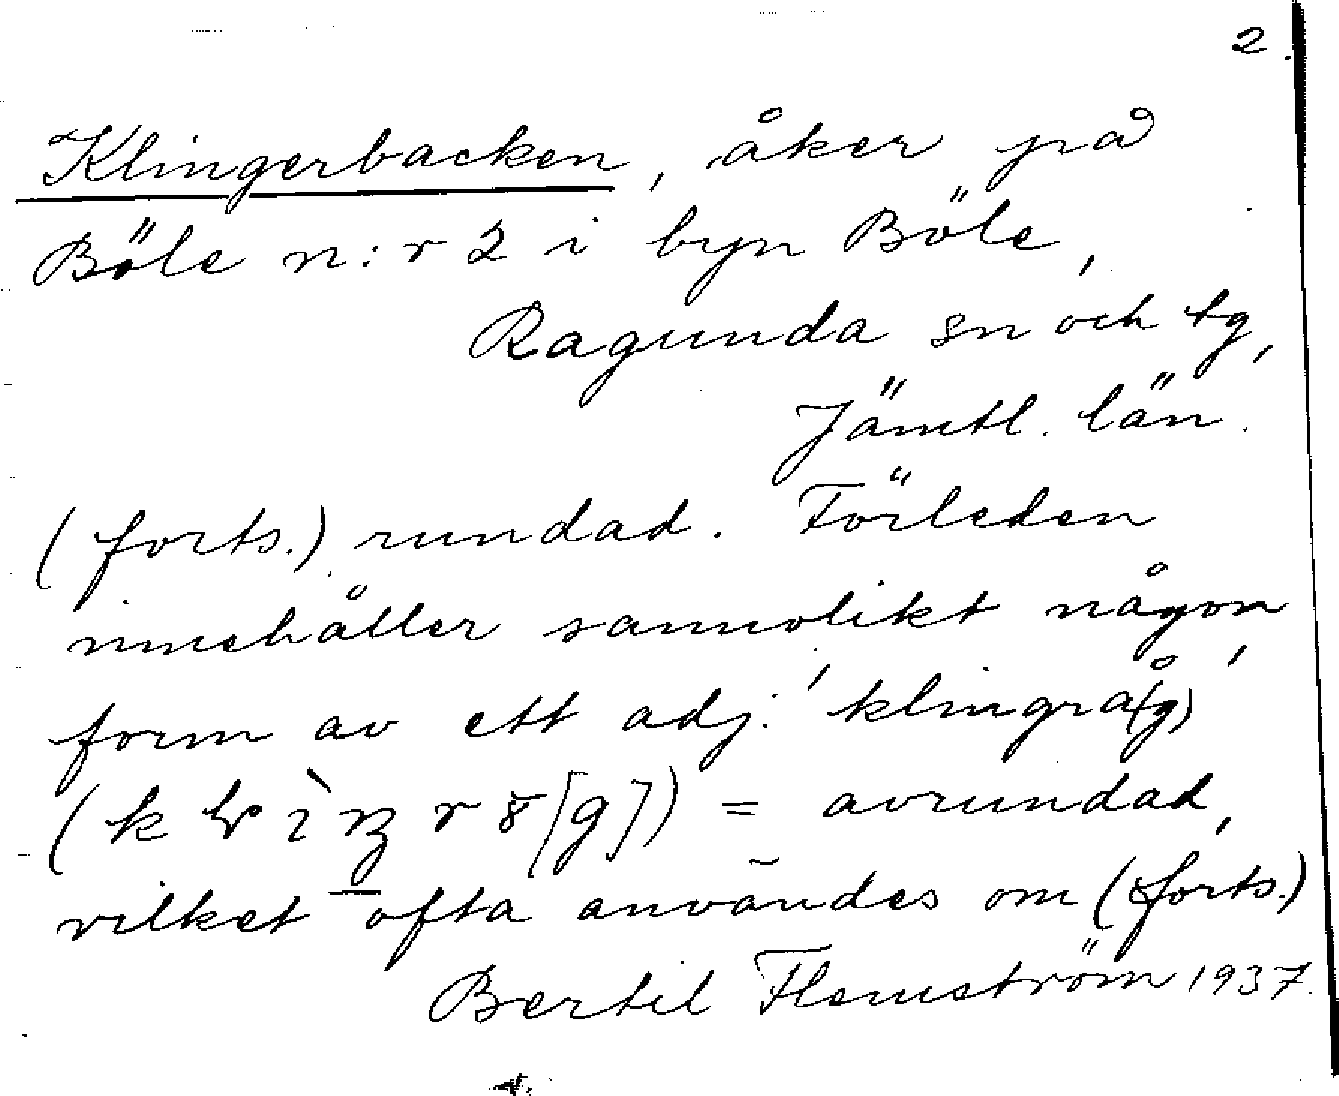 2.
Klingerbacken, åker på
Böle n:r 2 i byn Böle,
Ragunda sn och tg,
Jämtl. län.
(forts.) rundad. Förleden
innehåller sannolikt någon
form av ett adj. 'klingrå(g)'
= avrundad,
vilket ofta användes om (forts.)
Bertil Flemström 1937.